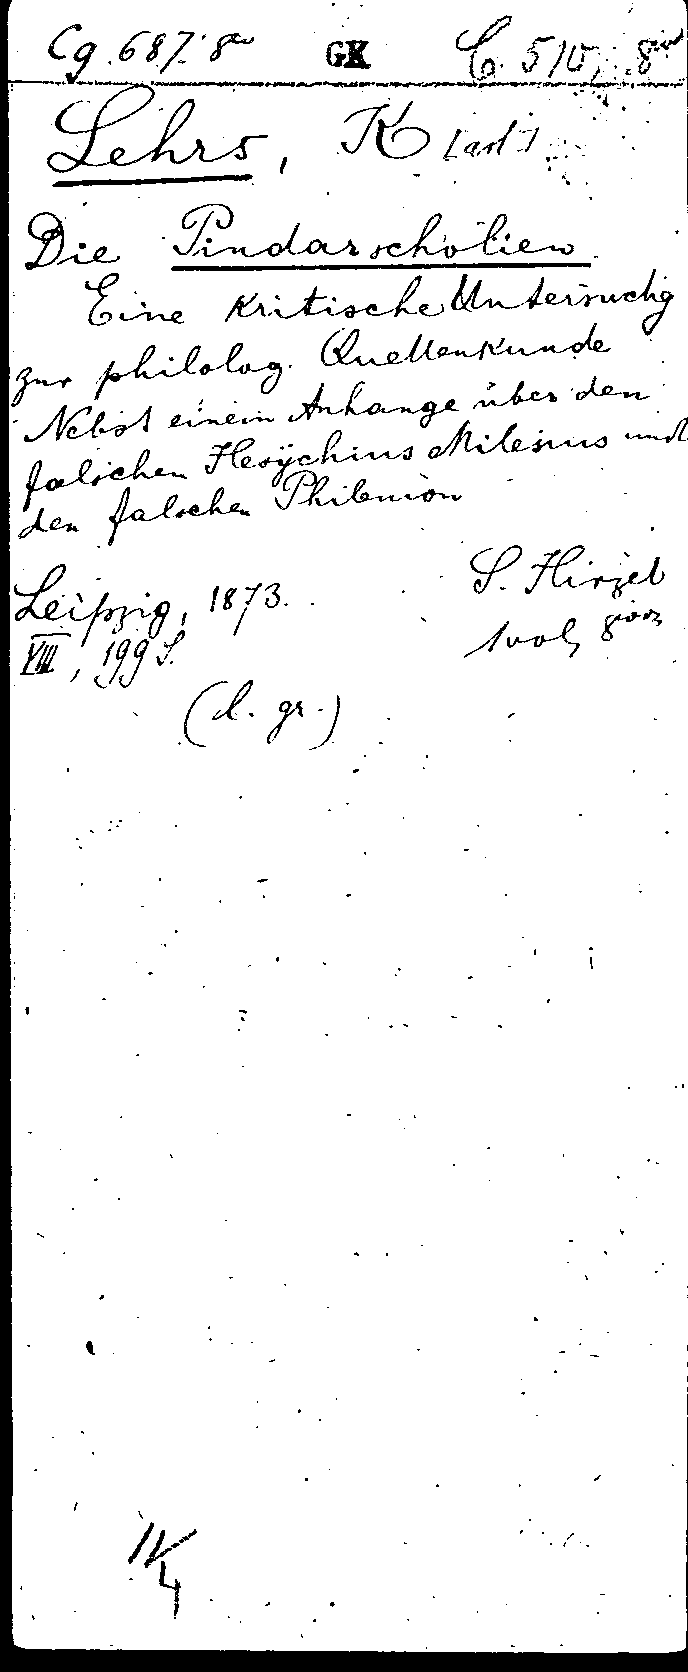 Cg. 687. 8vo GK C. 510, 8vo
Lehrs, K[arl]
Die Pindarscholien
Eine kritische Untersuchg
zur philolog. Quellenkunde
Nebst einem Anhange über den
falschen Hesychius Milesius und
den falschen Philemon
S. Hirzel
Leipzig, 1873.
1 vol,
VIII, 199 S.
(d. gr.)